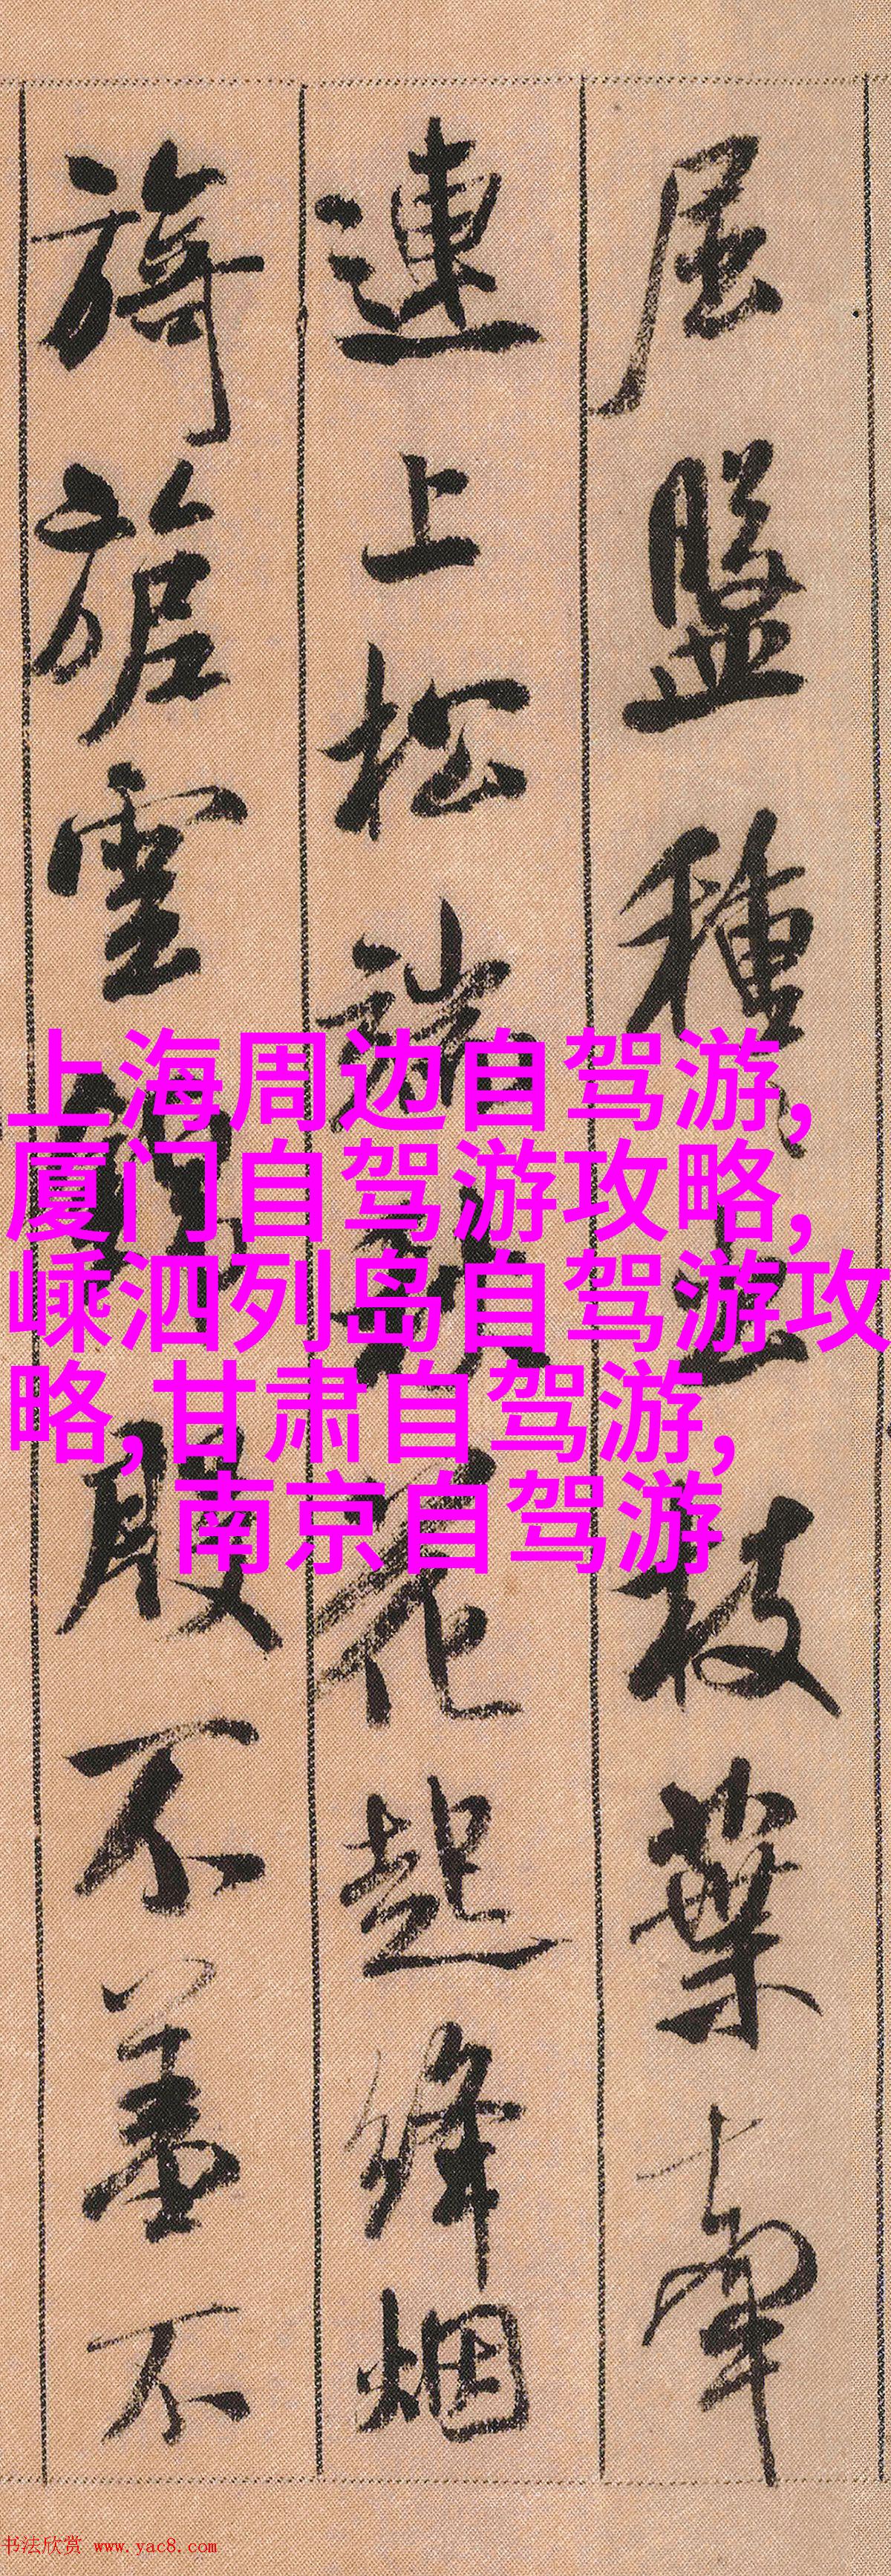 屈盤種〻出枝葉牽
連上松端秋花起絳烟
旖旎雲錦殷不羞不
上海周边自驾游,
厦门自驾游攻略,
嵊泗列岛自驾游攻
略,甘肃自驾游,
南京自驾游
书法欣赏 www.yac8.com